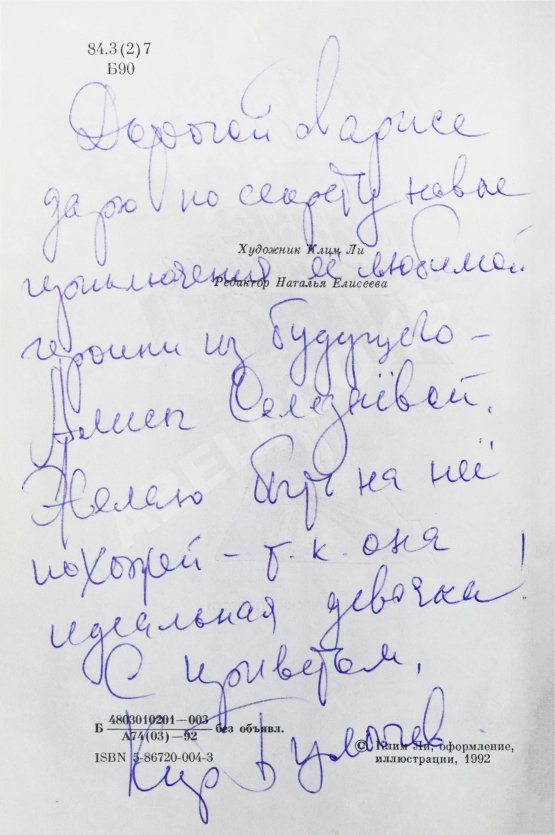 84.3(2)7
Б90
Дорогой Ларисе
дарю по секрету новые
Художник Клим Ли
приключения её любимой
Редактор Наталья Елисеева
героини из будущего –
Алисы Селезнёвой.
Желаю быть на неё
похожей – т.к. она
идеальная девочка!
С приветом,
Б 4803010201—003 без объявл.
А74(03)—92
Кир Булычев
© Клим Ли, оформление,
ISBN 5-86720-004-3 иллюстрации, 1992